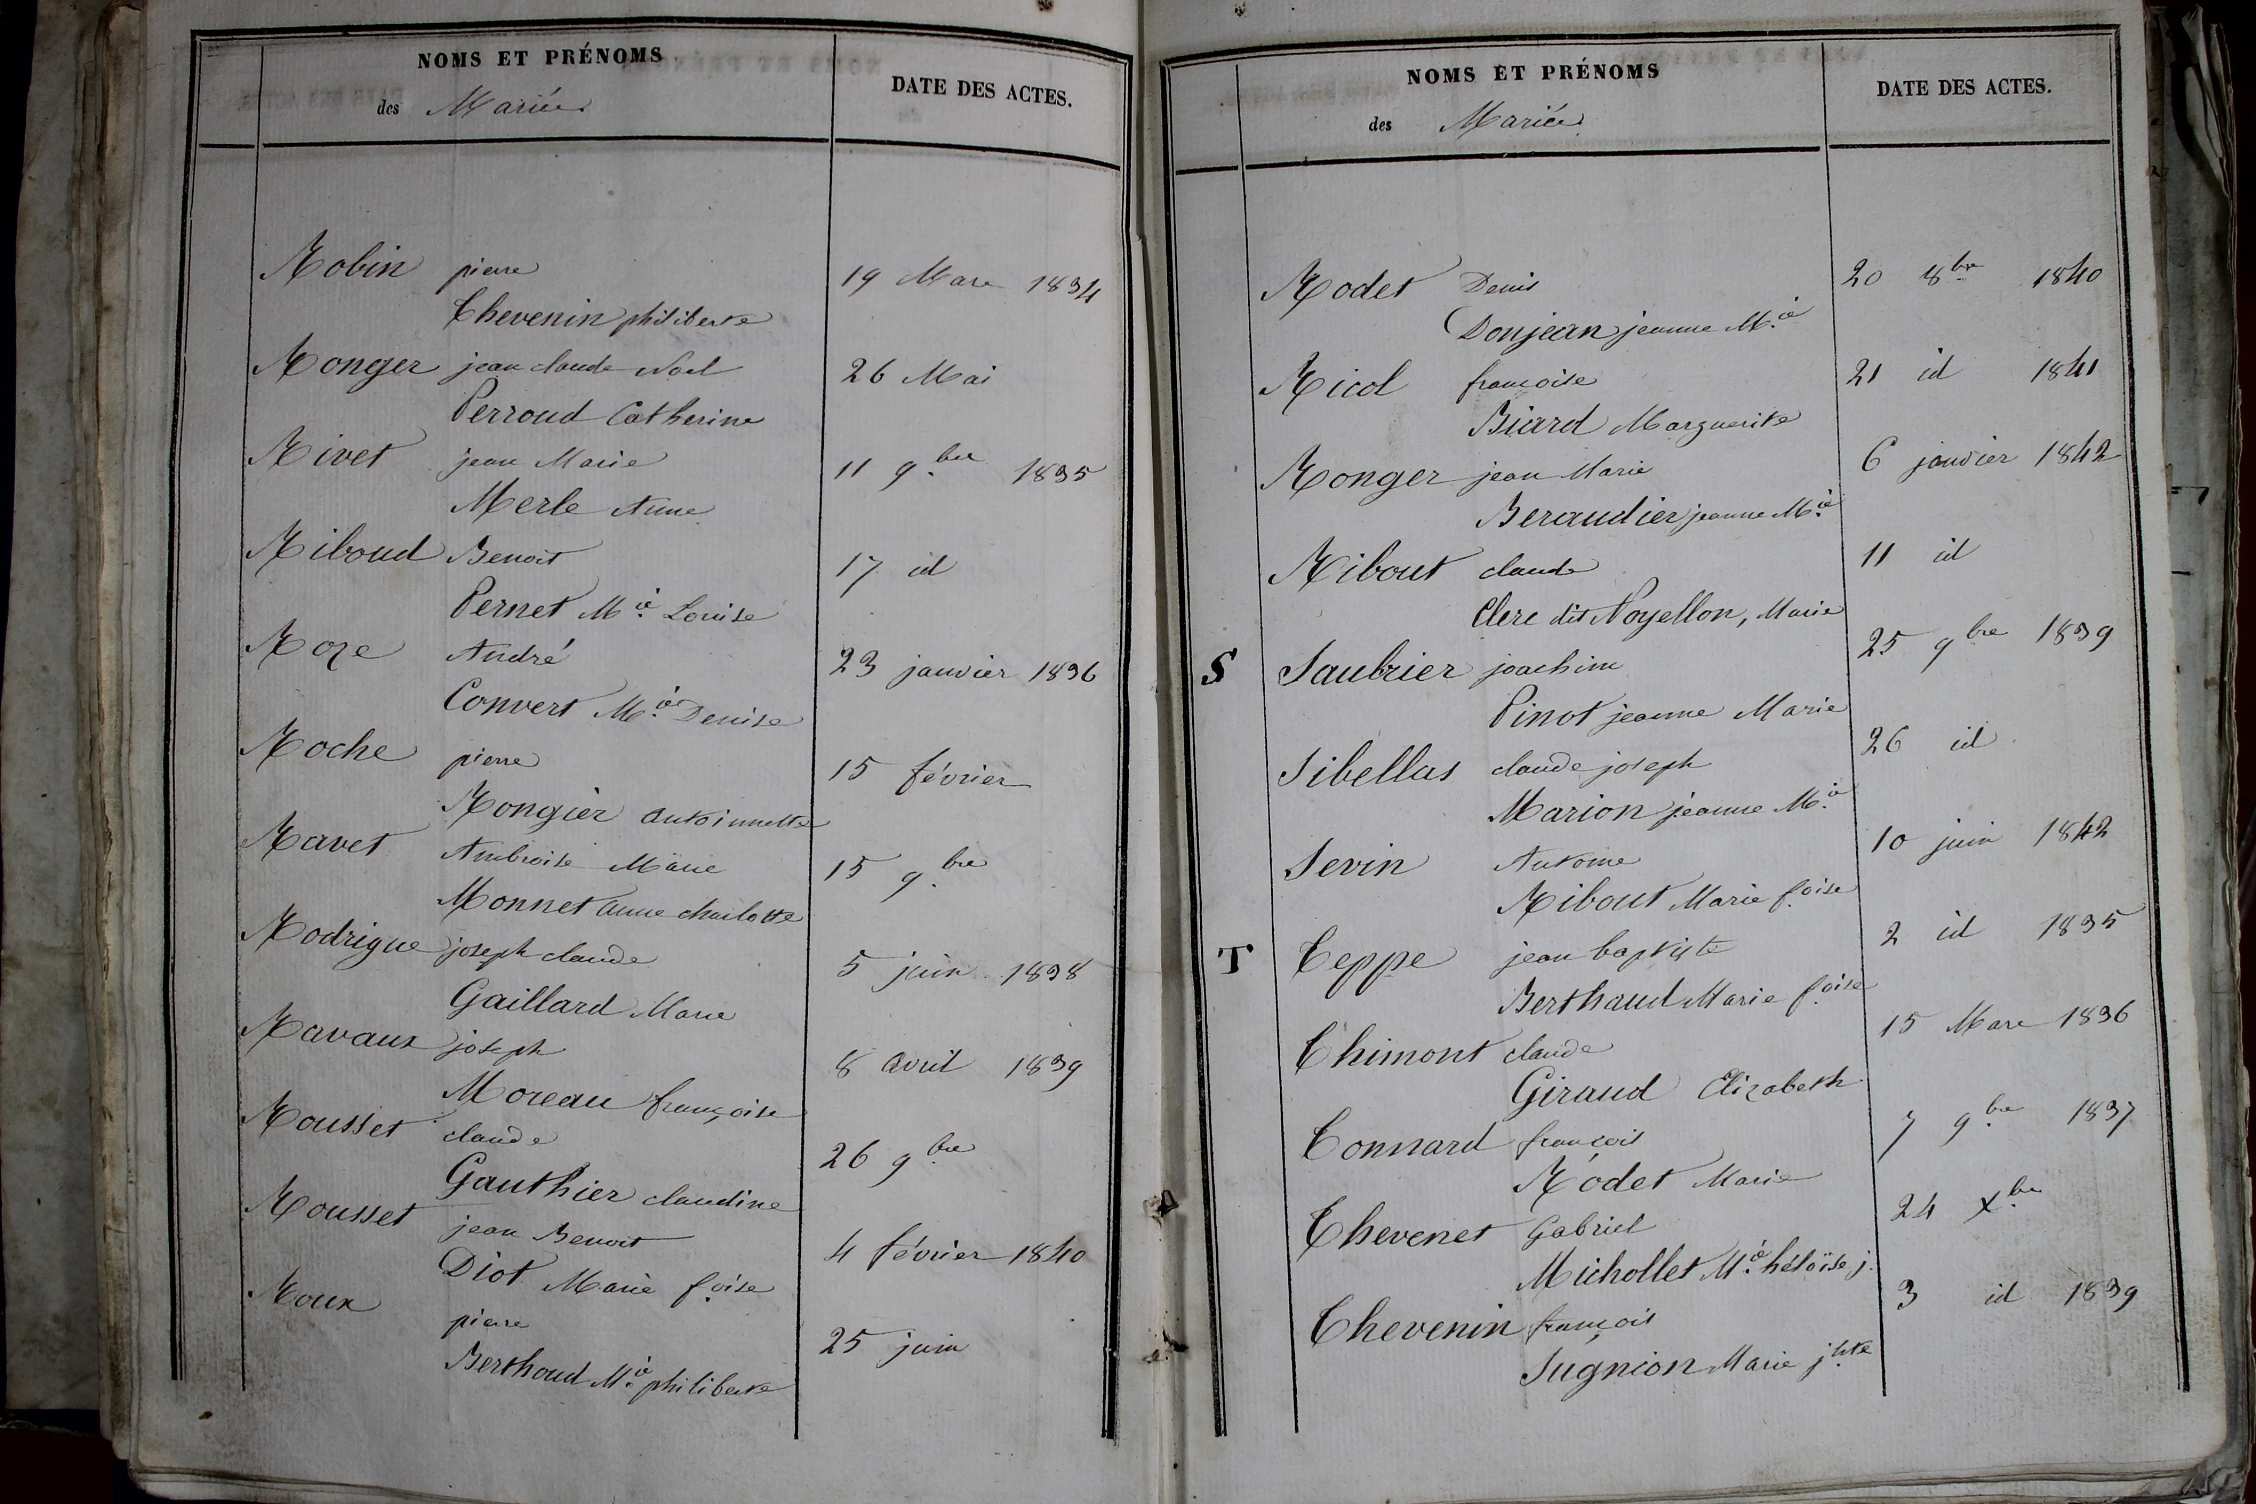 NOMS ET PRÉNOMS
des Mariés
DATE DES ACTES.
Robin pierre 19 Mars 1834
Thevenin philiberte
Ronger jean claude Noel 26 Mai
Perroud Catherine
Rivet jean Marie 11 9.bre 1835
Merle Anne
Riboud Benoit 17 id
Pernet M.ie Louise
Roze André 23 janvier 1836
Convert M.ie Denise
Roche pierre 15 février
Rongier antoinnette
Ravet Ambroise Marie 15 9.bre
Monnet anne charlotte
Rodrigue joseph claude 5 juin 1838
Gaillard Marie
Ravaux joseph 8 avril 1839
Moreau françoise
Rousset claude 26 9bre
Gauthier claudine
Rousset jean Benoit 4 février 1840
Diot Marie f.oise
Roux pierre 25 juin
Berthoud M.ie philiberte
NOMS ET PRÉNOMS
des Mariés
DATE DES ACTES.
Rodet Denis 20 8bre 1840
Donjean jeanne M.ie
Ricol françoise 21 id 1841
Biard Marguerite
Ronger jean Marie 6 janvier 1842
Beraudier jeanne M.ie
Ribout claude 11 id
Clerc dit Noyellon, Marie
S Saubrier joachim 25 9bre 1839
Pinot jeanne Marie
Sibellas claude joseph 26 id
Marion jeanne M.ie
Sevin Antoine 10 juin 1842
Ribout Marie f.oise
T Teppe jean baptiste 2 id 1835
Berthaud Marie f.oise
Thimont claude 15 Mars 1836
Giraud Elizabeth
Tonnard françois 7 9.bre 1837
Rodet Marie
Thevenet Gabriel 24 X.bre
Michollet M.ie héloïse j.
Thevenin françois 3 id 1839
Sugnion Marie j.hte